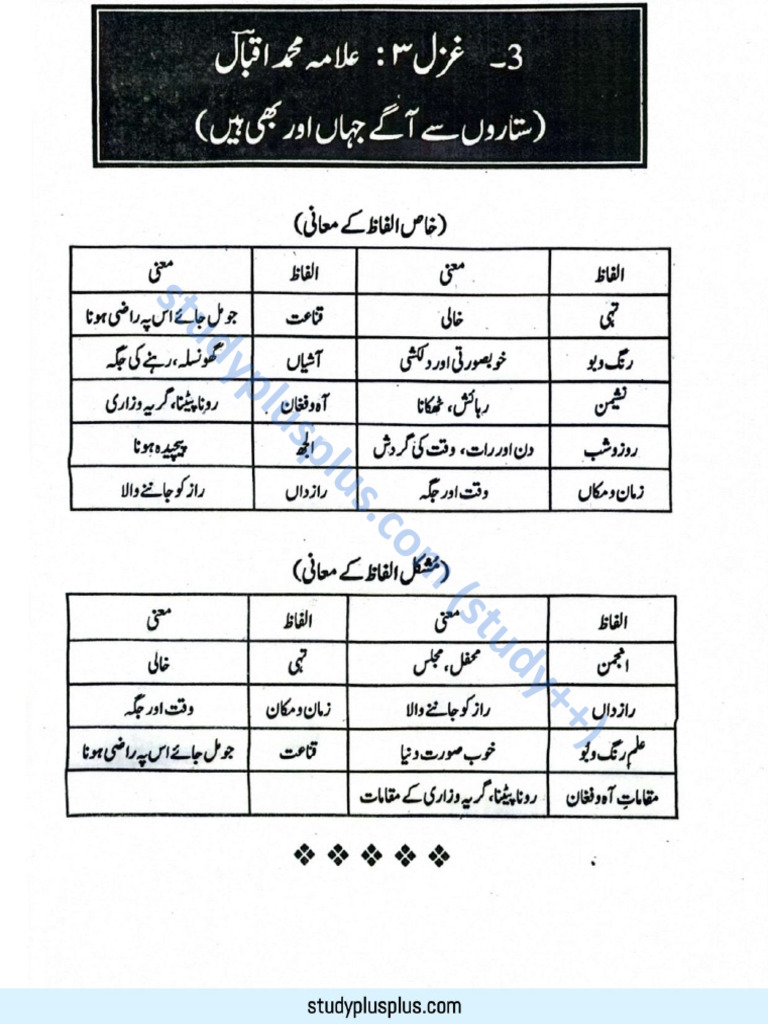 3۔ غزل ۳: علامہ محمد اقبالؒ
(ستاروں سے آگے جہاں اور بھی ہیں)
(خاص الفاظ کے معانی)
الفاظ معنی الفاظ معنی
تہی خالی قناعت جو مل جائے اس پہ راضی ہونا
رنگ و بو خوبصورتی اور دلکشی آشیاں گھونسلہ، رہنے کی جگہ
نشیمن رہائش، ٹھکانا آہ و فغان رونا پیٹنا، گریہ وزاری
روز و شب دن اور رات، وقت کی گردش الجھ پیچیدہ ہونا
زمان و مکاں وقت اور جگہ رازداں راز کو جاننے والا
(مُشکل الفاظ کے معانی)
الفاظ معنی الفاظ معنی
انجمن محفل، مجلس تہی خالی
رازداں راز کو جاننے والا زمان و مکان وقت اور جگہ
علم رنگ و بُو خوب صورت دنیا قناعت جو مل جائے اس پہ راضی ہونا
مقاماتِ آہ و فغان رونا پیٹنا، گریہ وزاری کے مقامات
studyplusplus.com (study++)
studyplusplus.com